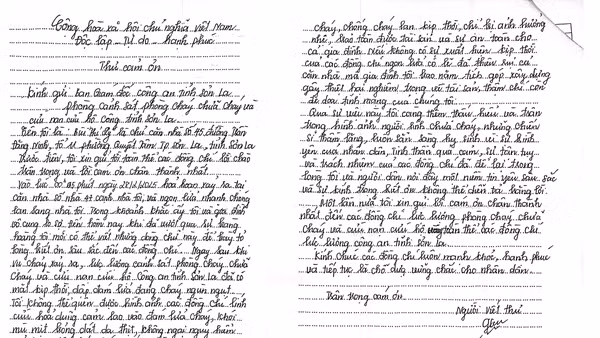 Cộng hoà xã hội chủ nghĩa Việt Nam
Độc lập Tự do Hạnh phúc
Thư cảm ơn
Kính gửi ban Giám đốc công an tỉnh Sơn La
phòng cảnh sát phòng cháy chữa cháy và
cứu nạn cứu hộ Công an tỉnh Sơn La.
Tên tôi là: Bùi Thị là chủ căn nhà số 45 đường
tổ 11 phường Quyết Tâm TP Sơn La, tỉnh Sơn La
tôi xin gửi tới tập thể các đồng chí lời chào
trân trọng và lời cảm ơn chân thành nhất
Vào lúc 05 phút ngày hoả hoạn xảy ra tại
căn nhà số cạnh nhà tôi, và ngọn lửa nhanh chóng
lan sang nhà tôi. Trong khoảnh khắc ấy tôi và gia đình
vô cùng lo sợ. Đến hôm nay khi đã vượt qua sự bàng
hoàng tôi mới có thể viết những dòng chữ này để bày tỏ
lòng biết ơn sâu sắc đến các đồng chí. Ngay sau khi
vụ cháy xảy ra, lực lượng cảnh sát phòng cháy chữa
cháy và cứu nạn cứu hộ Công an tỉnh Sơn La đã có
mặt kịp thời, dập đám lửa đang cháy ngùn ngụt.
Tôi không thể quên được hình ảnh các đồng chí lính
cứu hoả dũng cảm lao vào đám lửa cháy, khói
mù mịt nóng rát da thịt, không ngại nguy hiểm
cháy, chống cháy lan kịp thời, chỉ bị ảnh hưởng
nhẹ, bảo toàn được tài sản và sự an toàn cho
cả gia đình. Nếu không có sự xuất hiện kịp thời
của các đồng chí ngọn lửa có lẽ đã thiêu rụi cả
căn nhà mà gia đình tôi bao năm tích góp xây dựng
gây thiệt hại nghiêm trọng về tài sản, thậm chí còn
đe doạ tính mạng của chúng tôi.
Qua sự việc này tôi càng thêm thấu hiểu và trân
trọng hình ảnh người lính chữa cháy, những chiến
sĩ thầm lặng, luôn sẵn sàng hy sinh vì sự bình
yên của nhân dân, tinh thần quả cảm, sự tận tụy
và trách nhiệm của các đồng chí đã để lại trong
lòng tôi và người dân nơi đây một niềm tin yêu sâu sắc
và sự kính trọng biết ơn không thể diễn tả bằng lời.
Một lần nữa tôi xin gửi lời cảm ơn chân thành
nhất đến các đồng chí lực lượng phòng cháy chữa
cháy và cứu nạn cứu hộ toàn thể các đồng chí
lực lượng công an tỉnh Sơn La
Kính chúc các đồng chí luôn mạnh khoẻ, hạnh phúc
và tiếp tục là chỗ dựa vững chắc cho nhân dân.
Trân trọng cảm ơn
Người viết thư